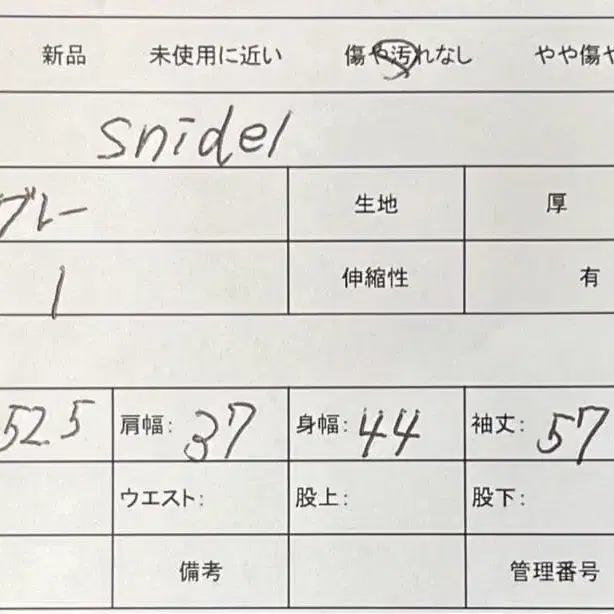 新品 未使用に近い 傷や汚れなし やや傷や
snidel
ブルー 生地 厚
1 伸縮性 有
52.5 肩幅: 37 身幅: 44 袖丈: 57
ウエスト: 股上: 股下:
備考 管理番号